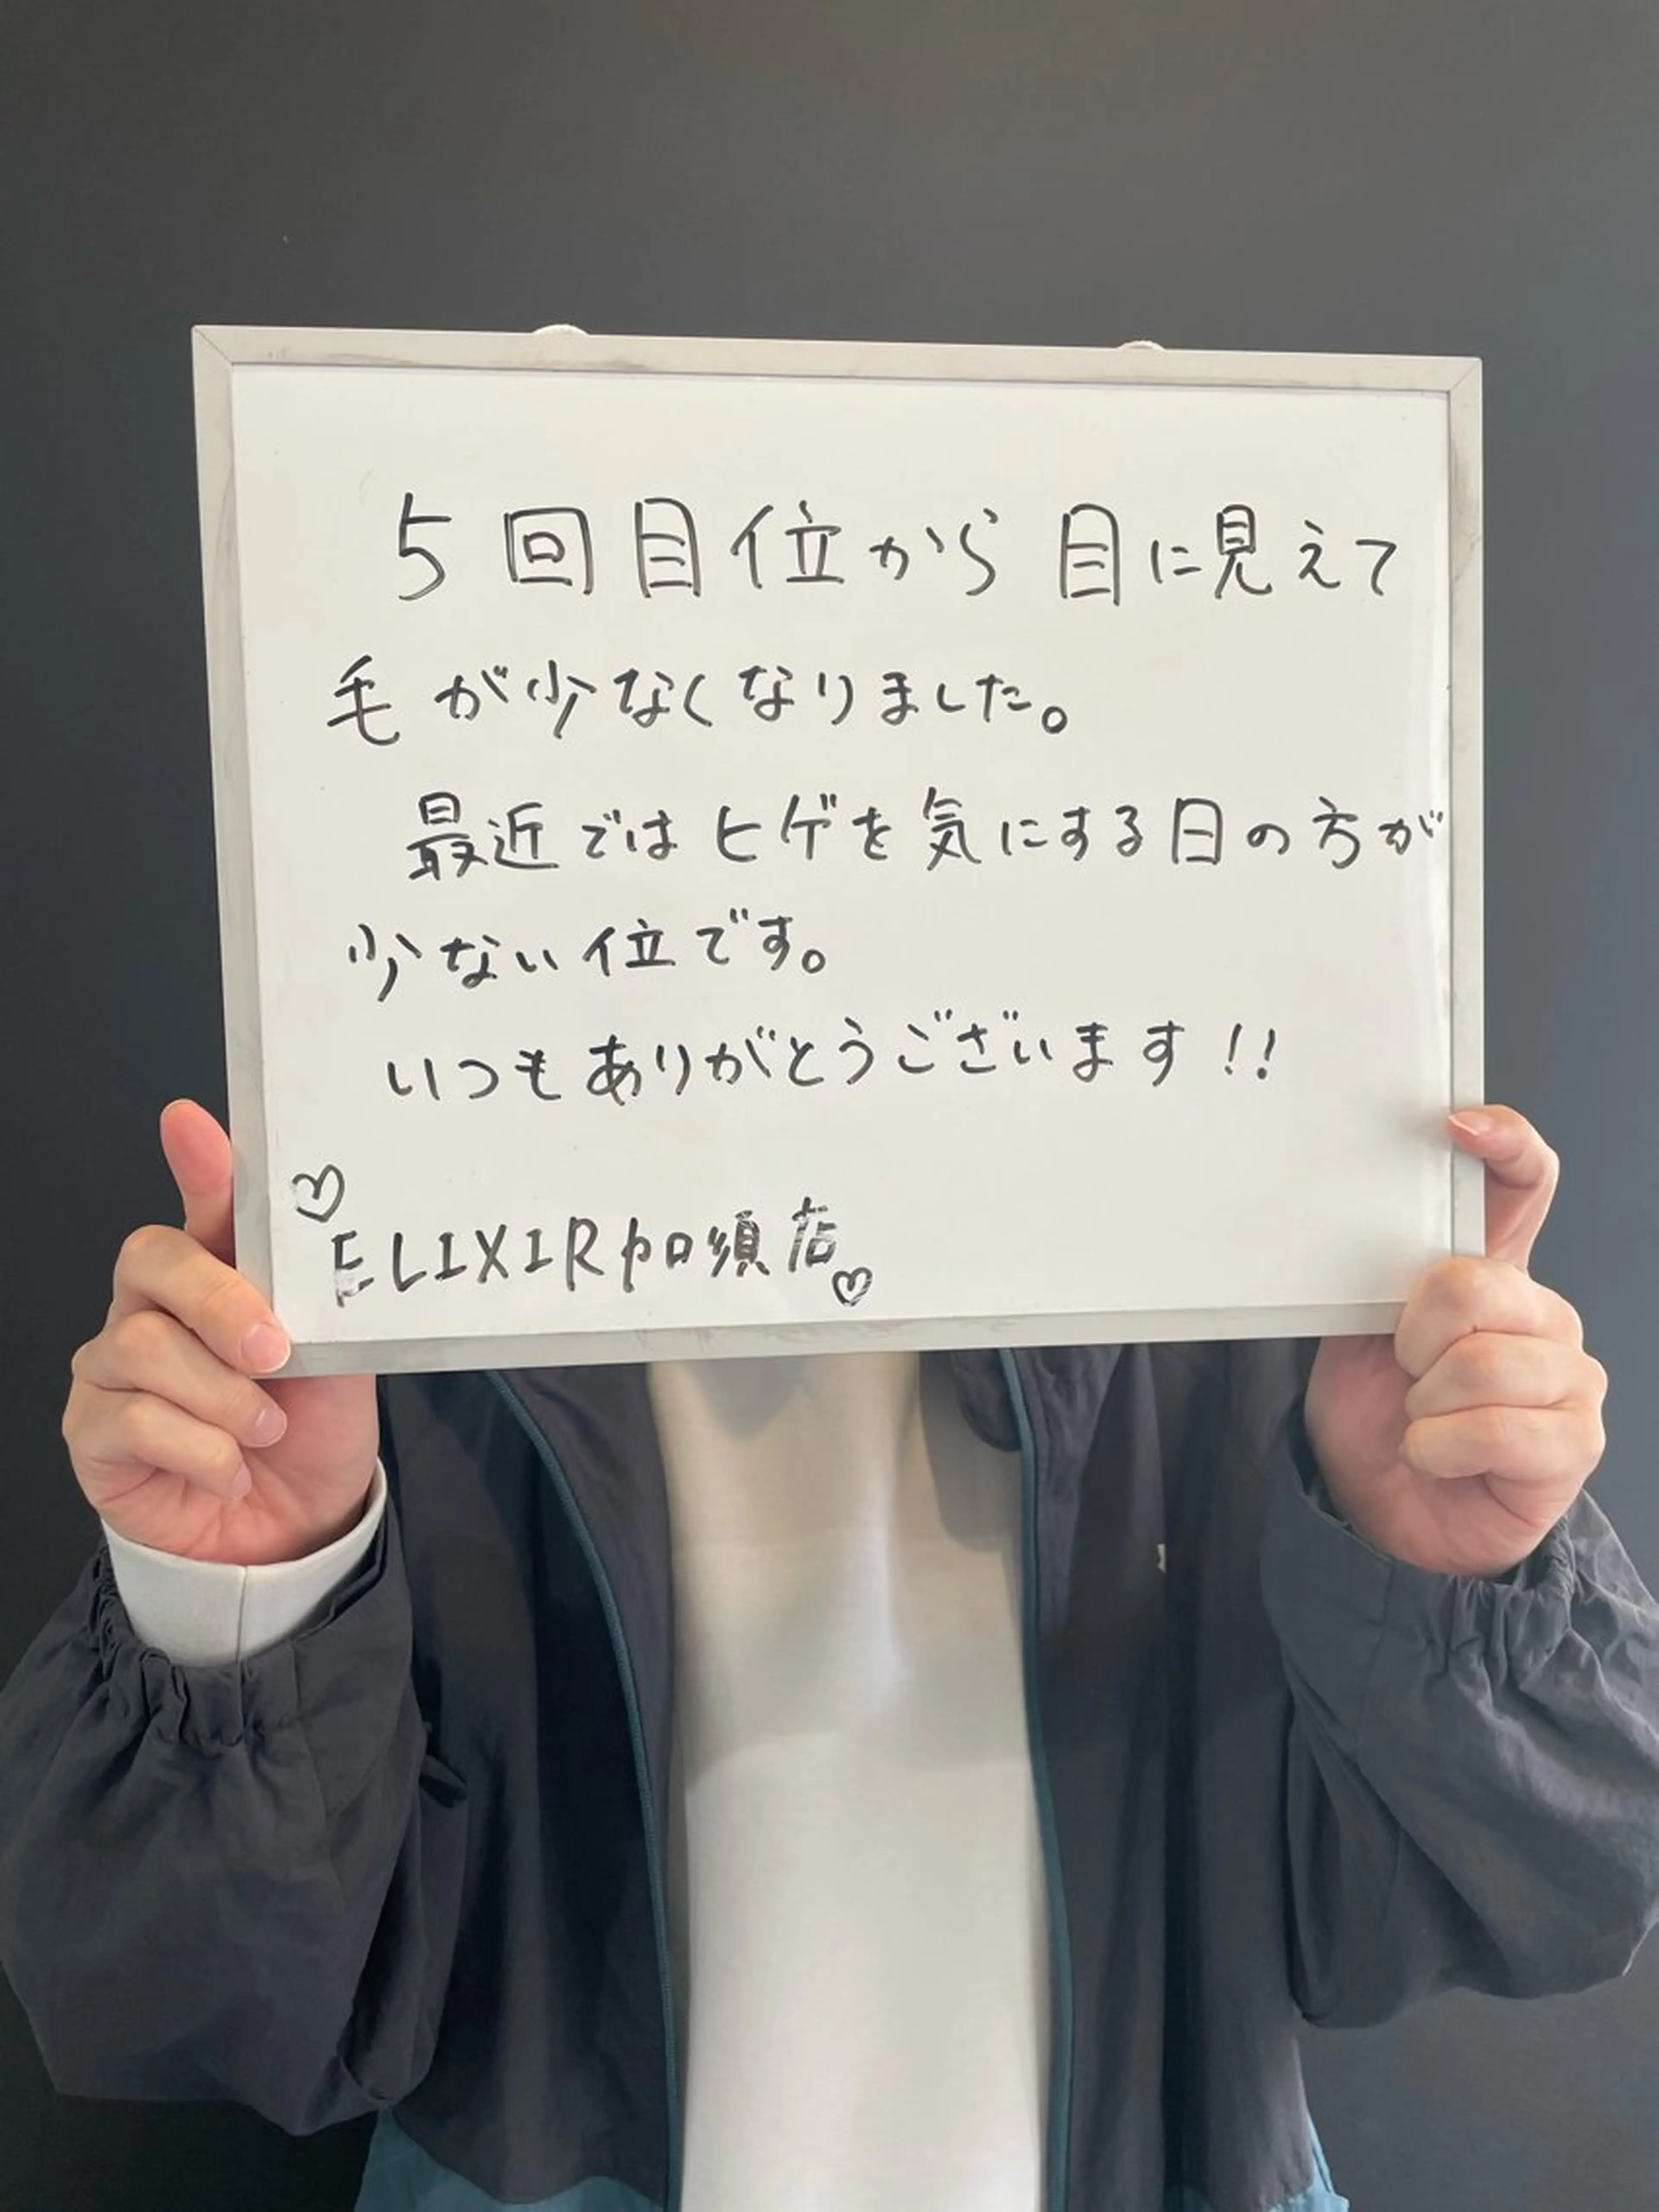 5回目位から目に見えて
毛が少なくなりました。
最近ではヒゲを気にする日の方が
少ない位です。
いつもありがとうございます!!
♡ELIXIR加須店♡